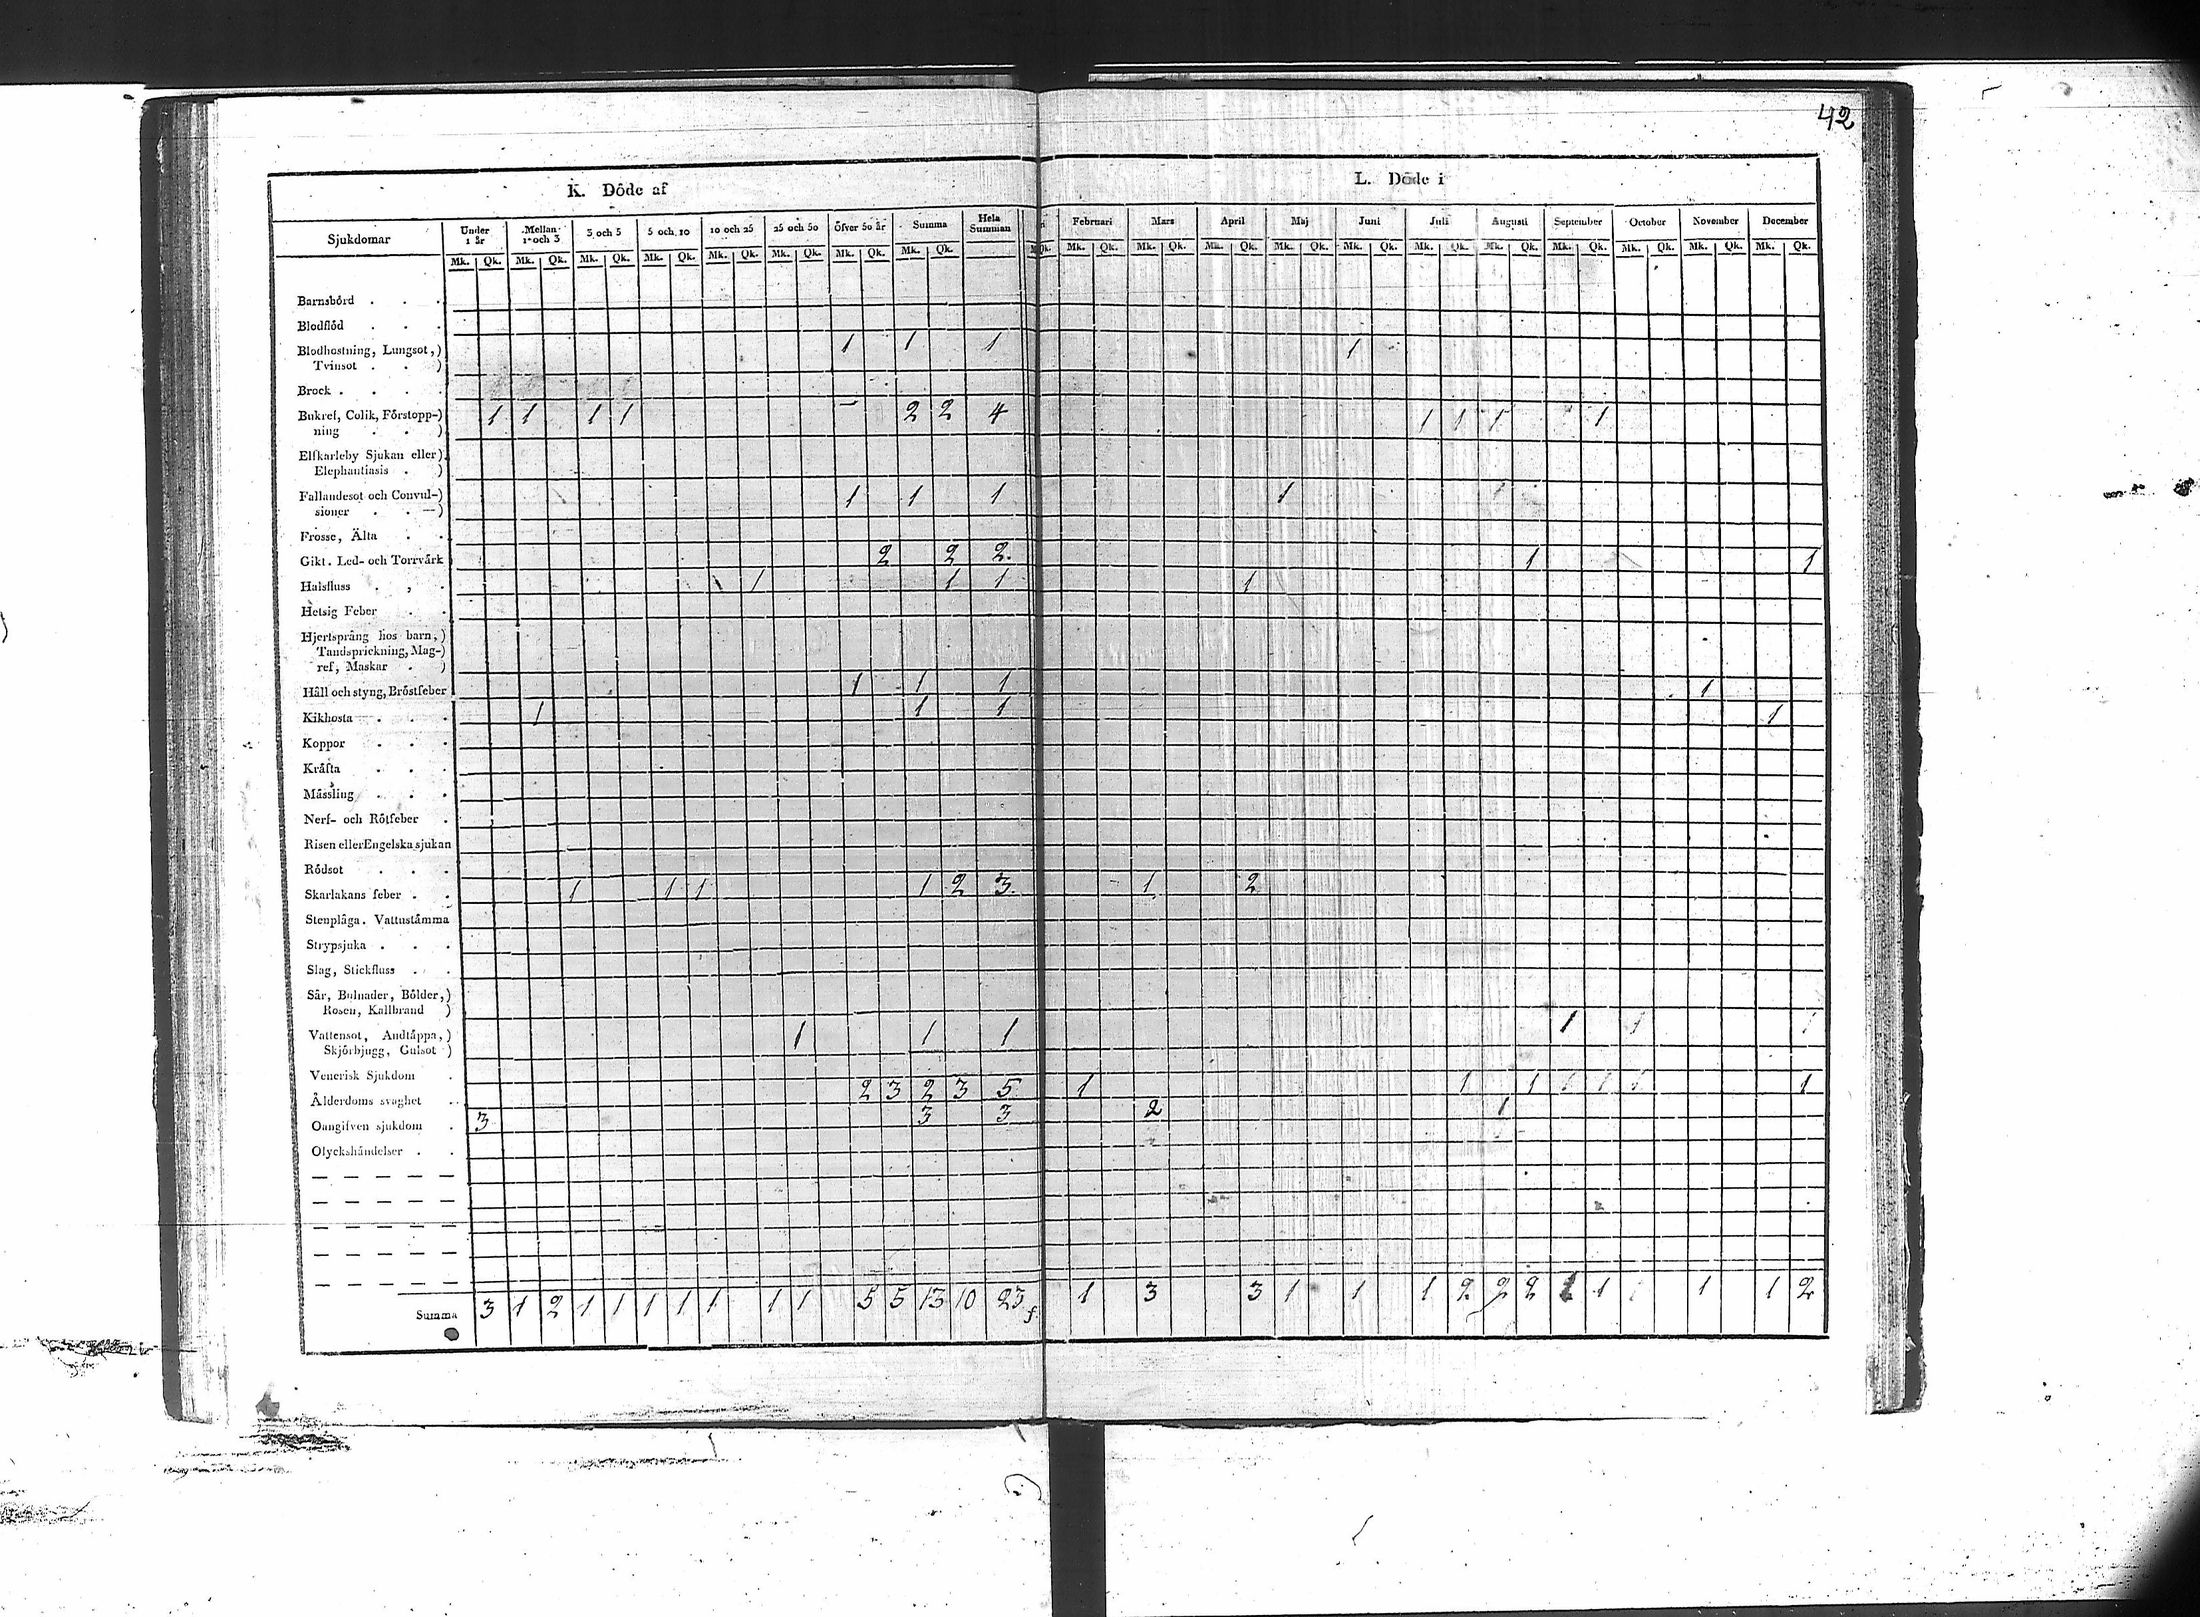 42
K. Döde af
L. Döde i
Sjukdomar Under 1 år Mellan 1 och 3 3 och 5 5 och 10 10 och 25 25 och 50 Öfver 50 år Summa Hela Summan Februari Mars April Maj Juni Juli Augusti September October November December
Mk. Qk. Mk. Qk. Mk. Qk. Mk. Qk. Mk. Qk. Mk. Qk. Mk. Qk. Mk. Qk. Qk. Mk. Qk. Mk. Qk. Mk. Qk. Mk. Qk. Mk. Qk. Mk. Qk. Mk. Qk. Mk. Qk. Mk. Qk. Mk. Qk. Mk. Qk.
Barnsbörd . . .
Blodflöd . . .
Blodhostning, Lungsot,) 1 1 1 1
Tvinsot . . )
Brock . . . .
Bukref, Colik, Förstopp-) 1 1 1 1 – 2 2 4 1 1 1 1
ning . . )
Elfkarleby Sjukan eller)
Elephantiasis . )
Fallandesot och Convul-) 1 1 1 1
sioner . . —)
Frosse, Älta . .
Gikt. Led- och Torrvärk 2 2 2. 1 1
Halsfluss . , . 1 1 1 1
Hetsig Feber . .
Hjertsprång hos barn,)
Tandsprickning, Mag-)
ref, Maskar . )
Håll och styng, Bröstfeber 1 1 1 1
Kikhosta . . . 1 1 1 1
Koppor . . .
Kräfta . . .
Mässling . . .
Nerf- och Rötfeber .
Risen eller Engelska sjukan
Rödsot . . .
Skarlakans feber . . 1 1 1 1 2 3. 1 2
Stenplåga. Vattustämma
Strypsjuka . . .
Slag, Stickfluss . .
Sår, Bulnader, Bölder,)
Rosen, Kallbrand )
Vattensot, Andtäppa,) 1 1 1 1 1 1
Skjörbjugg, Gulsot )
Venerisk Sjukdom .
Ålderdoms svaghet . . 2 3 2 3 5 1 1 1 1 1 1 1
Oangifven sjukdom . 3 3 3 2 1
Olyckshändelser . .
— — — — —
— — — — —
— — — — —
— — — — —
— — — — —
Summa 3 1 2 1 1 1 1 1 1 1 5 5 13 10 23 1 3 3 1 1 1 2 2 2 1 1 1 1 2